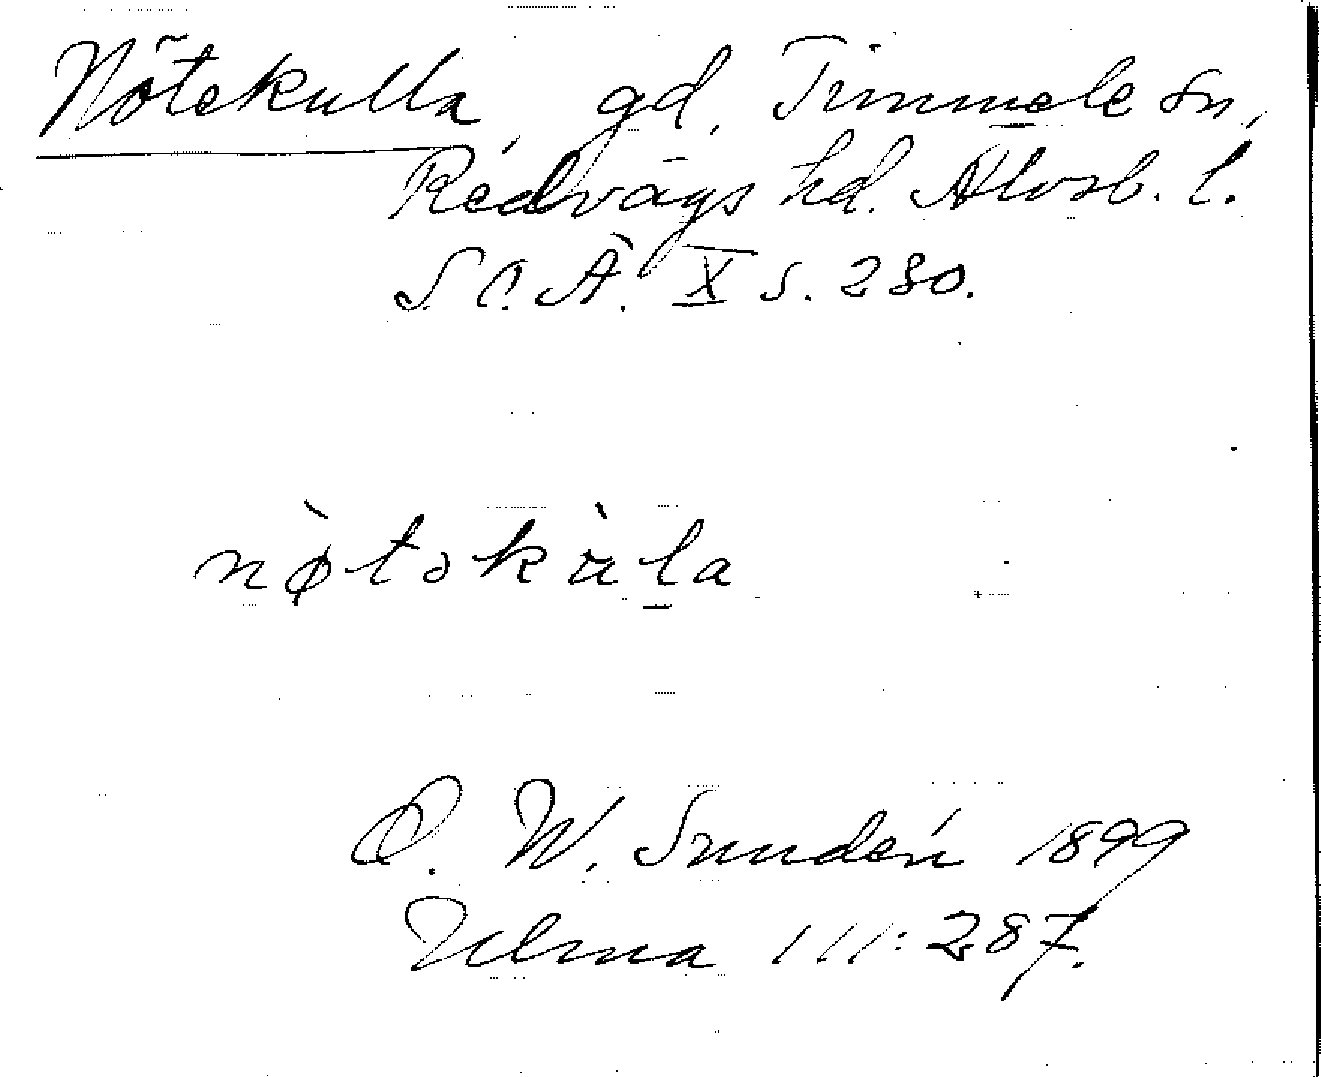 Nötekulla, gd, Timmele sn,
Redvägs hd. Älvsb. l.
S.O.Ä. X s. 280.
nø̀təkùla
O. W. Sundén 1899
Ulma 111:287.